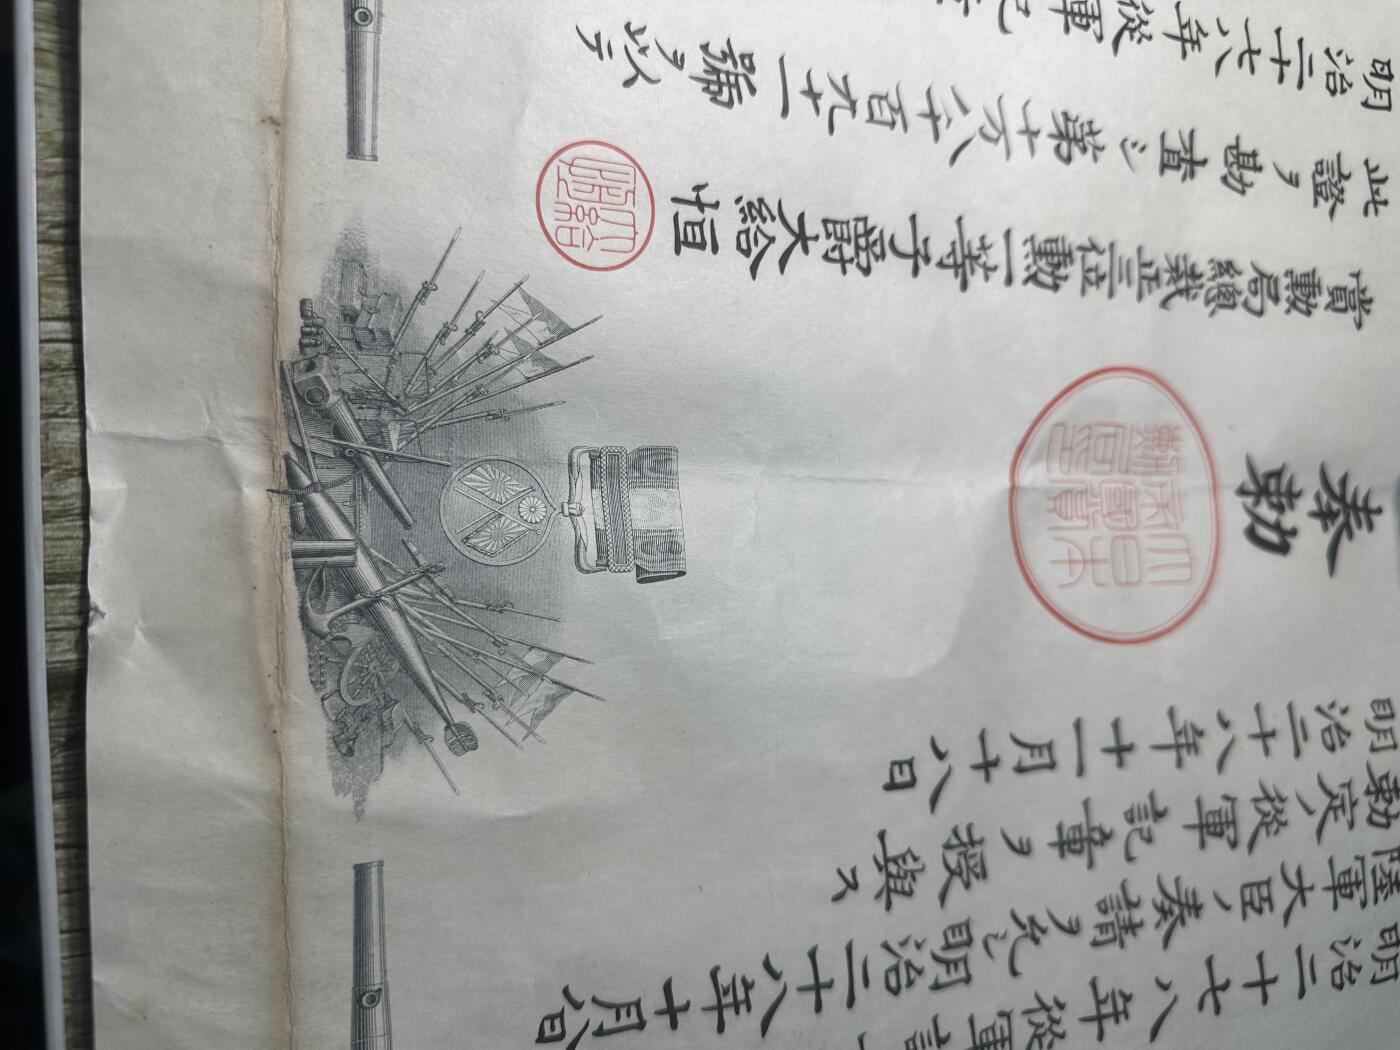 明治二十七八年從軍記
陸軍大臣ノ奏請ヲ允シ明治二十八年十月八日
勅定ノ從軍記章ヲ授與ス
明治二十八年十一月十八日
奉勅
大日本帝國賞勳局印
賞勳局總裁正三位勳一等子爵大給恒
此證ヲ勘査シ第十万八千百九十一號ヲ以テ
明治二十七八年從軍記